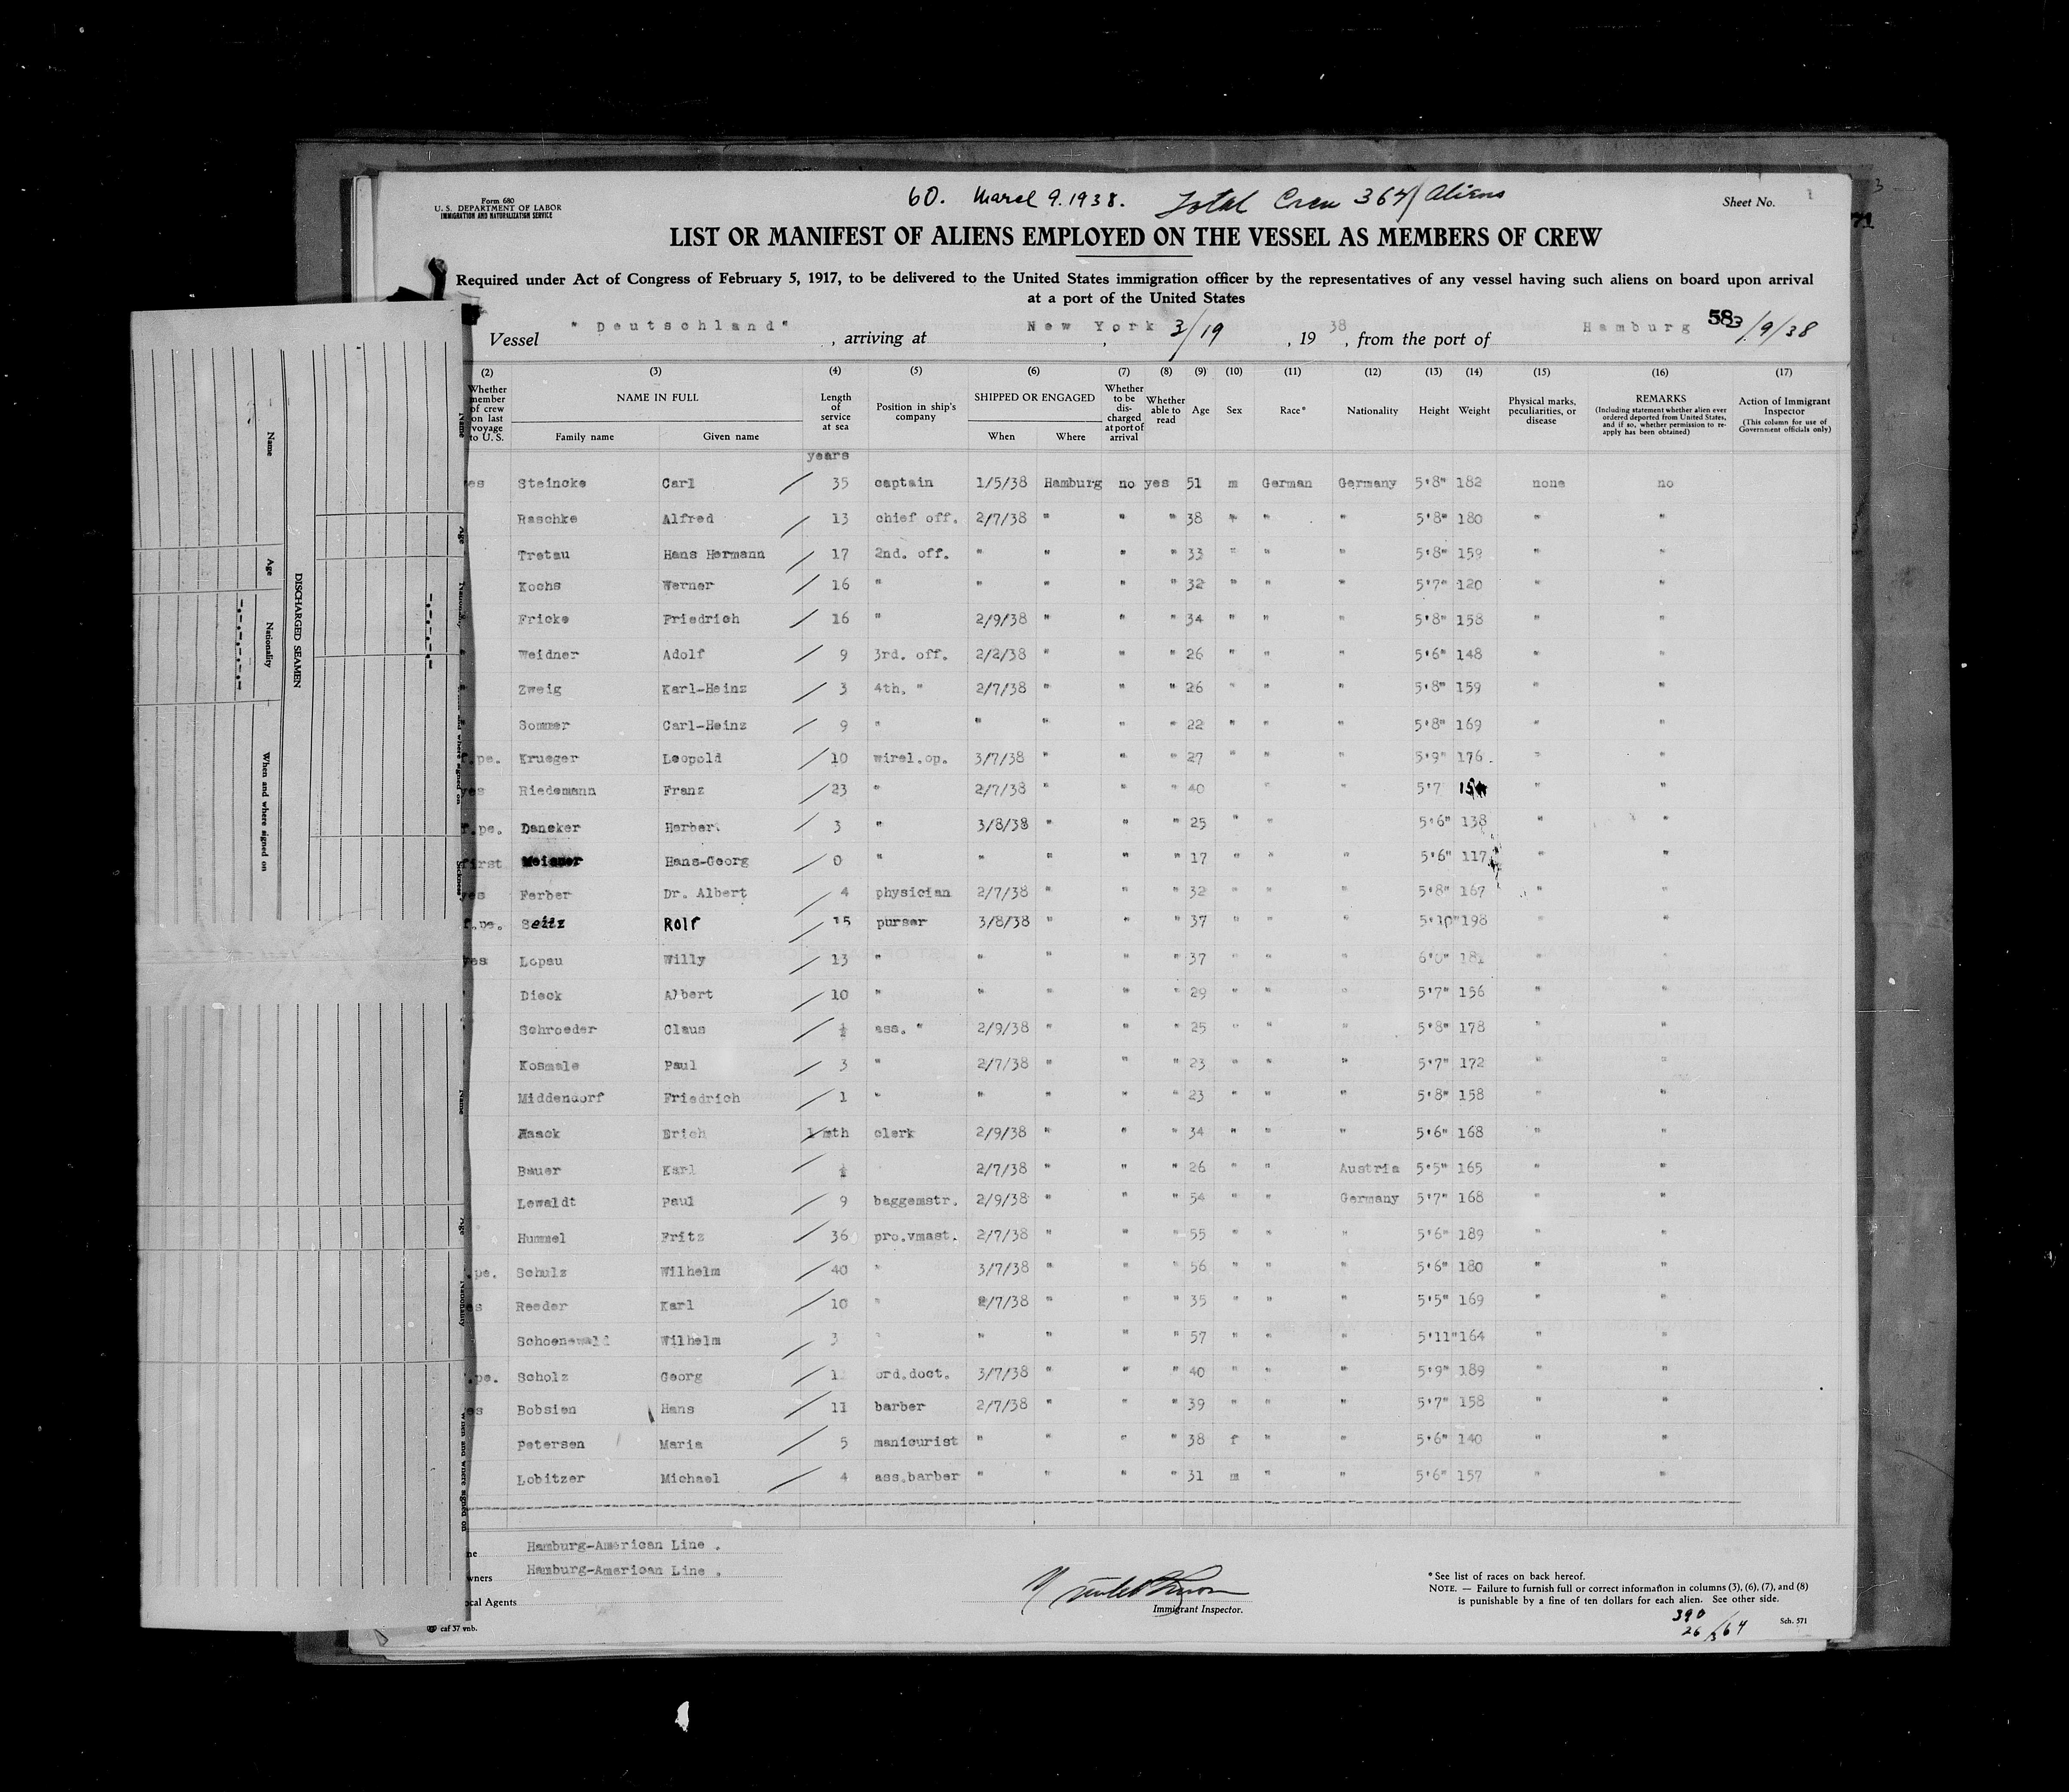 Form 680
U. S. DEPARTMENT OF LABOR
IMMIGRATION AND NATURALIZATION SERVICE
60. March 9. 1938. Total Crew 364 Aliens
Sheet No. 1
LIST OR MANIFEST OF ALIENS EMPLOYED ON THE VESSEL AS MEMBERS OF CREW
Required under Act of Congress of February 5, 1917, to be delivered to the United States immigration officer by the representatives of any vessel having such aliens on board upon arrival
at a port of the United States
Vessel "Deutschland", arriving at New York 3/19, 1938, from the port of Hamburg 3/9/38
(2) (3) (4) (5) (6) (7) (8) (9) (10) (11) (12) (13) (14) (15) (16) (17)
Whether member of crew on last voyage to U.S. NAME IN FULL Family name Given name Length of service at sea Position in ship's company SHIPPED OR ENGAGED When Where Whether to be discharged at port of arrival Whether able to read Age Sex Race* Nationality Height Weight Physical marks, peculiarities, or disease REMARKS (Including statement whether alien ever ordered deported from United States, and if so, whether permission to re-apply has been obtained) Action of Immigrant Inspector (This column for use of Government officials only)
years
es Steincke Carl / 35 captain 1/5/38 Hamburg no yes 51 m German Germany 5'8" 182 none no
Raschke Alfred / 13 chief off. 2/7/38 " " " 38 " " " 5'8" 180 " "
Tretau Hans Hermann / 17 2nd. off. " " " " 33 " " " 5'8" 159 " "
Kochs Werner / 16 " " " " " 32 " " " 5'7" 120 " "
Fricke Friedrich / 16 " 2/9/38 " " " 34 " " " 5'8" 158 " "
Weidner Adolf / 9 3rd. off. 2/2/38 " " " 26 " " " 5'6" 148 " "
Zweig Karl-Heinz / 3 4th. " 2/7/38 " " " 26 " " " 5'8" 159 " "
Sommer Carl-Heinz / 9 " " " " " 22 " " " 5'8" 169 " "
f.pe. Krueger Leopold / 10 wirel.op. 3/7/38 " " " 27 " " " 5'9" 176 " "
yes Riedemann Franz / 23 " 2/7/38 " " " 40 " " 5'7 " "
f.pe. Dancker / 3 " 3/8/38 " " " 25 " " 5'6" 138 " "
first Hans-Georg / 0 " " " " " 17 " " " 5'6" 117 " "
yes Ferber Dr. Albert / 4 physician 2/7/38 " " " 32 " " " 5'8" 167 " "
f.pe. Seitz Rolf / 15 purser 3/8/38 " " " 37 " " " 5'10" 198 " "
yes Lopau Willy / 13 " " " " " 37 " " " 6'0" " "
Dieck Albert / 10 " " " " " 29 " " " 5'7" 156 " "
Schroeder Claus / ½ ass. " 2/9/38 " " " 25 " " " 5'8" 178 " "
Kosmale Paul / 3 " 2/7/38 " " " 23 " " " 5'7" 172 " "
Middendorf Friedrich / 1 " " " " " 23 " " " 5'8" 158 " "
Haack Erich 1 mth clerk 2/9/38 " " " 34 " " " 5'6" 168 " "
Bauer Karl / ½ 2/7/38 " " " 26 " " Austria 5'5" 165 " "
Lewaldt Paul / 9 baggemstr. 2/9/38 " " " 54 " " Germany 5'7" 168 " "
Hummel Fritz / 36 pro.vmast. 2/7/38 " " " 55 " " " 5'6" 189 " "
.pe. Schulz Wilhelm / 40 " 3/7/38 " " " 56 " " " 5'6" 180 " "
es Reeder Karl / 10 " 2/7/38 " " " 35 " " " 5'5" 169 " "
Schoenewald Wilhelm / 3 " " " " " 57 " " " 5'11" 164 " "
.pe. Scholz Georg / ord.doct. 3/7/38 " " " 40 " " " 5'9" 189 " "
es Bobsien Hans / 11 barber 2/7/38 " " " 39 " " " 5'7" 158 " "
Petersen Maria / 5 manicurist " " " " 38 f " " 5'6" 140 " "
Lobitzer Michael / 4 ass.barber " " " " 31 m " " 5'6" 157 " "
Hamburg-American Line .
wners Hamburg-American Line .
cal Agents
Immigrant Inspector.
* See list of races on back hereof.
NOTE. — Failure to furnish full or correct information in columns (3), (6), (7), and (8)
is punishable by a fine of ten dollars for each alien. See other side.
390
26/364
Sch. 571
caf 37 vnb.
DISCHARGED SEAMEN
Name Age Nationality When and where signed on